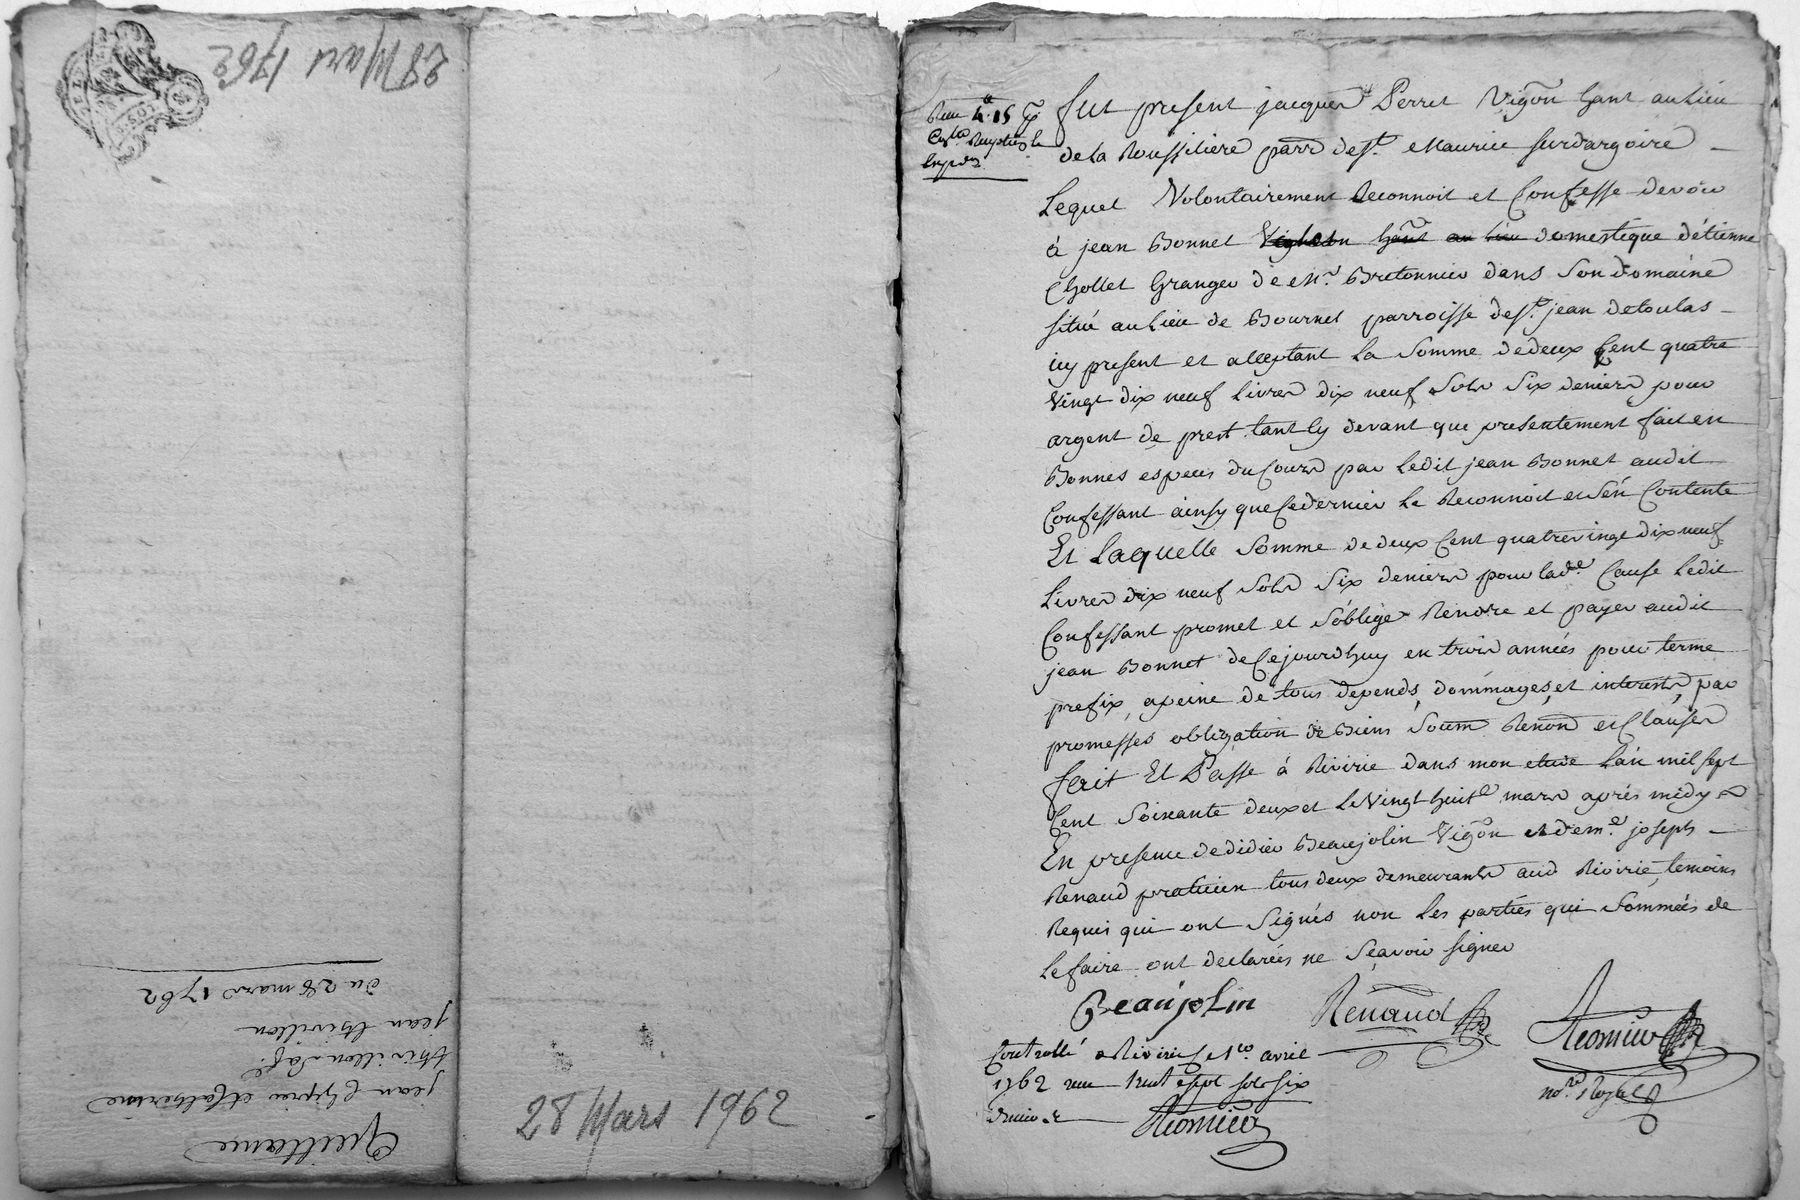 28 Mars 1762
Quittance
jean Chipier et Catherine
jean
du 28 mars 1762
28 Mars 1962
fut present jacques Perret Vig̃on h̃ant au Lieu
de la Roussiliere parr̃ de St. Maurice sur dargoire
Lequel Volontairement Reconnoit et Confesse devoir
à jean Bonnet Vigneron h̃ant au lieu domestique détienne
Chollet Granger de Mr. Bretonnier dans son domaine
situé au Lieu de Bournet parroisse de St. jean de toulas
icy present et acceptant La Somme de deux Cent quatre
Vingt dix neuf Livres dix neuf Sols Six deniers pour
argent de prest tant Cy devant que presentement fait en
Bonnes especes du Cours par Ledit jean Bonnet audit
Confessant ainsy que Ce dernier Le Reconnoit et s'en Contente
Et Laquelle Somme de deux Cent quatre vingt dix neuf
Livres dix neuf Sols Six deniers pour lade. Cause Ledit
Confessant promet et s'oblige Rendre et payer audit
jean Bonnet de Cejourdhuy en trois années pour terme
prefix, a peine de tous depends, dommages, et interests, par
promesses obligation de Biens Soum̃ Renon̄ et Clauses
fait Et Passe à Riverie dans mon etude L'an mil sept
Cent Soixante deux et Le Vingt huite. mars après midy
En presence de didier Beaujolin Vig̃on et de me. joseph
Renaud praticien tous deux demeurants aud Riverie, temoins
Requis qui ont Signés non Les parties qui Sommées de
Le faire ont declarées ne Sçavoir signer
Beaujolin Renaud
nore. Royal
Controllé a Riverie Le 1er. avril
1762 reçu sept sols six
deniers